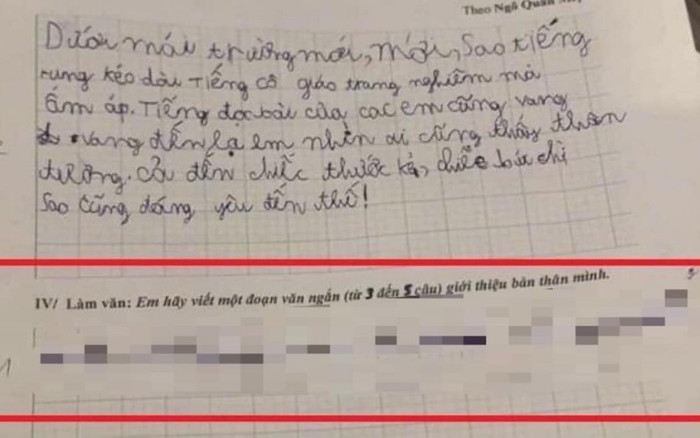 Theo Ngô Quân
Dưới mái trường mới, mới, sao tiếng
rung kéo dài Tiếng cô giáo trang nghiêm mà
ấm áp. Tiếng đọc bài của các em cũng vang
vang đến lạ em nhìn ai cũng thấy thân
thương. cả đến chiếc thước kẻ, chiếc bút chì
sao cũng đáng yêu đến thế!
IV/ Làm văn: Em hãy viết một đoạn văn ngắn (từ 3 đến 5 câu) giới thiệu bản thân mình.